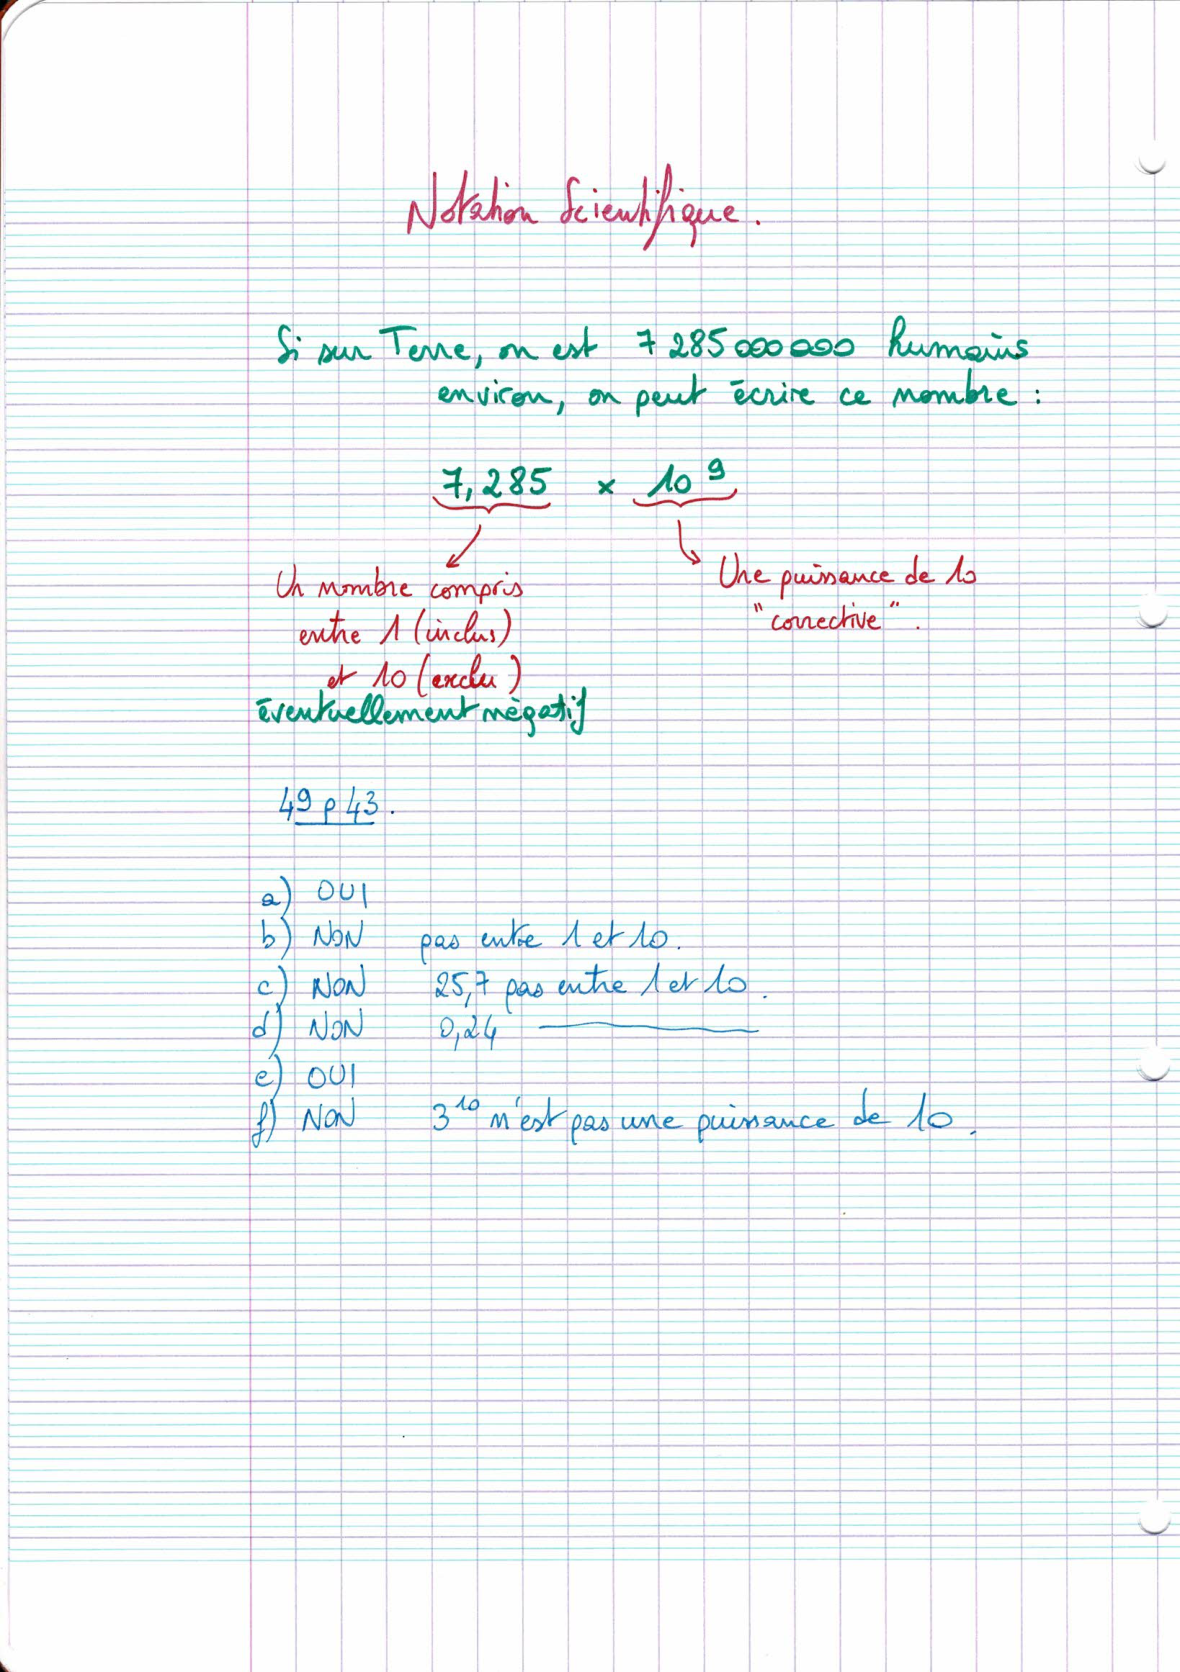 Notation Scientifique.
Si sur Terre, on est 7 285 000 000 humains
environ, on peut écrire ce nombre :
7,285 × 10⁹
Un nombre compris
entre 1 (inclus)
et 10 (exclu)
éventuellement négatif
Une puissance de 10
"corrective".
49 p 43.
a) OUI
b) NON pas entre 1 et 10.
c) NON 25,7 pas entre 1 et 10.
d) NON 0,24 ————
e) OUI
f) NON 3¹⁰ n'est pas une puissance de 10.